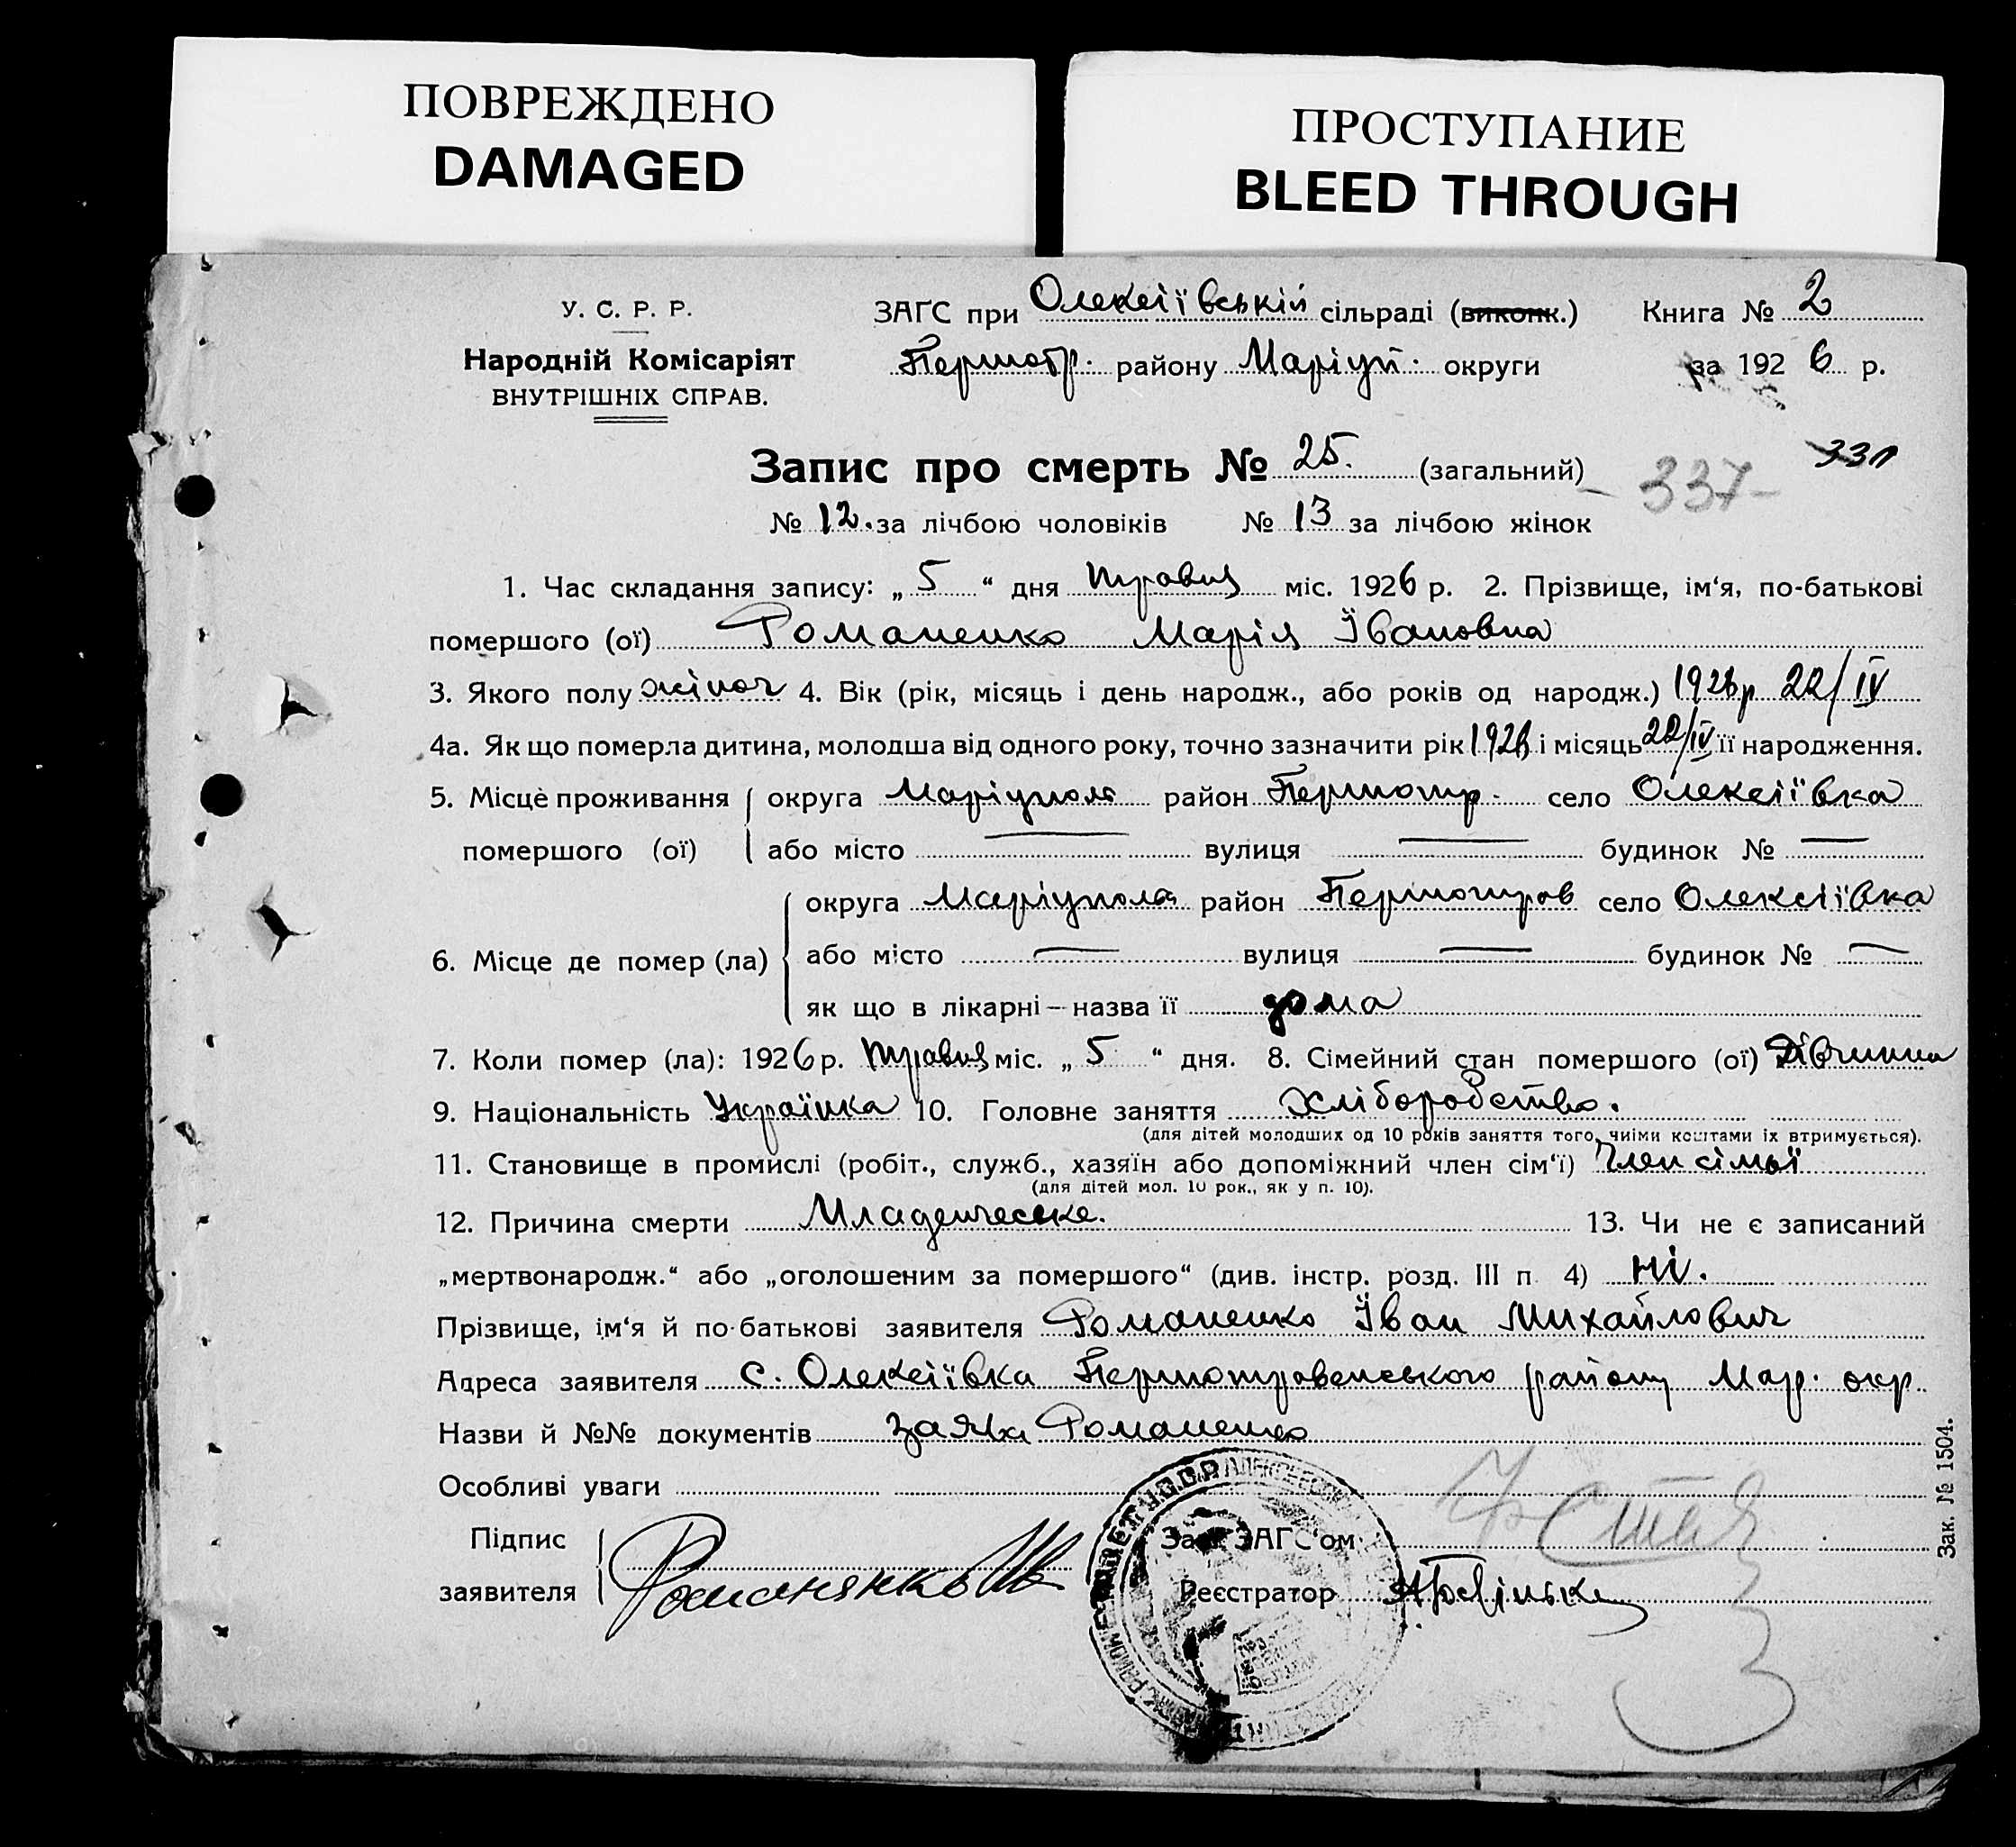 ПОВРЕЖДЕНО
DAMAGED
ПРОСТУПАНИЕ
BLEED THROUGH
У. С. Р. Р.
Народній Комісаріят
ВНУТРІШНІХ СПРАВ.
ЗАГС при Олексіївській сільраді (виконк.) Книга № 2
Першотр. району Маріуп. округи за 1926 р.
Запис про смерть № 25. (загальний) - 337 - 331
№ 12. за лічбою чоловіків № 13 за лічбою жінок
1. Час складання запису: „ 5 “ дня травня міс. 1926 р. 2. Прізвище, ім‘я, по-батькові
помершого (ої) Романенко Марія Ївановна
3. Якого полу жіноч 4. Вік (рік, місяць і день народж., або років од народж.) 1926 р 22/IV
4а. Як що померла дитина, молодша від одного року, точно зазначити рік 1926 і місяць 22/IV її народження.
5. Місце проживання округа Маріупол район Першотр. село Олексіївка
помершого (ої) або місто — вулиця — будинок № —
округа Маріупол район Першотров село Олексіївка
6. Місце де помер (ла) або місто — вулиця — будинок № —
як що в лікарні — назва її дома
7. Коли помер (ла): 1926 р. травня міс. „ 5 “ дня. 8. Сімейний стан помершого (ої) Дівчинка
9. Національність Українка 10. Головне заняття Хліборобство.
(для дітей молодших од 10 років заняття того, чиїми коштами їх втримується).
11. Становище в промислі (робіт., служб., хазяїн або допоміжний член сім‘ї) Член сімьї
(для дітей мол. 10 рок., як у п. 10).
12. Причина смерти Младенческе. 13. Чи не є записаний
„мертвонародж.“ або „оголошеним за помершого“ (див. інстр. розд. III п 4) ні.
Прізвище, ім‘я й по-батькові заявителя Романенко Їван Михайлович
Адреса заявителя с. Олексіївка Першотровенського району Мар. окр.
Назви й №№ документів заява Романенко
Особливі уваги
Підпис Зав. ЗАГС‘ом
заявителя Романянко Ив Реєстратор
Зак. № 1504.